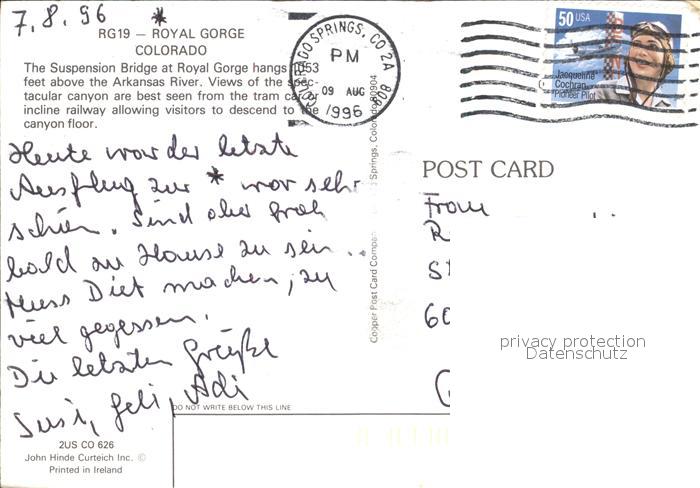 7.8.96 *
RG19 – ROYAL GORGE
COLORADO
The Suspension Bridge at Royal Gorge hangs 1053
feet above the Arkansas River. Views of the spec-
tacular canyon are best seen from the tram car or
incline railway allowing visitors to descend to the
canyon floor.
Heute war der letzte
Ausflug zur * war sehr
schön. Sind aber froh
bald zu Hause zu sein ...
Muss Diet machen, zu
viel gegessen.
Die letzten Grüße
Susi, Geli, Adi
2US CO 626
John Hinde Curteich Inc. ©
Printed in Ireland
DO NOT WRITE BELOW THIS LINE
Cooper Post Card Springs, Colorado 80904
COLORADO SPRINGS, CO 2A 809
PM
09 AUG
1996
50 USA
Jacqueline
Cochran
Pioneer Pilot
POST CARD
R
St
60
privacy protection
Datenschutz